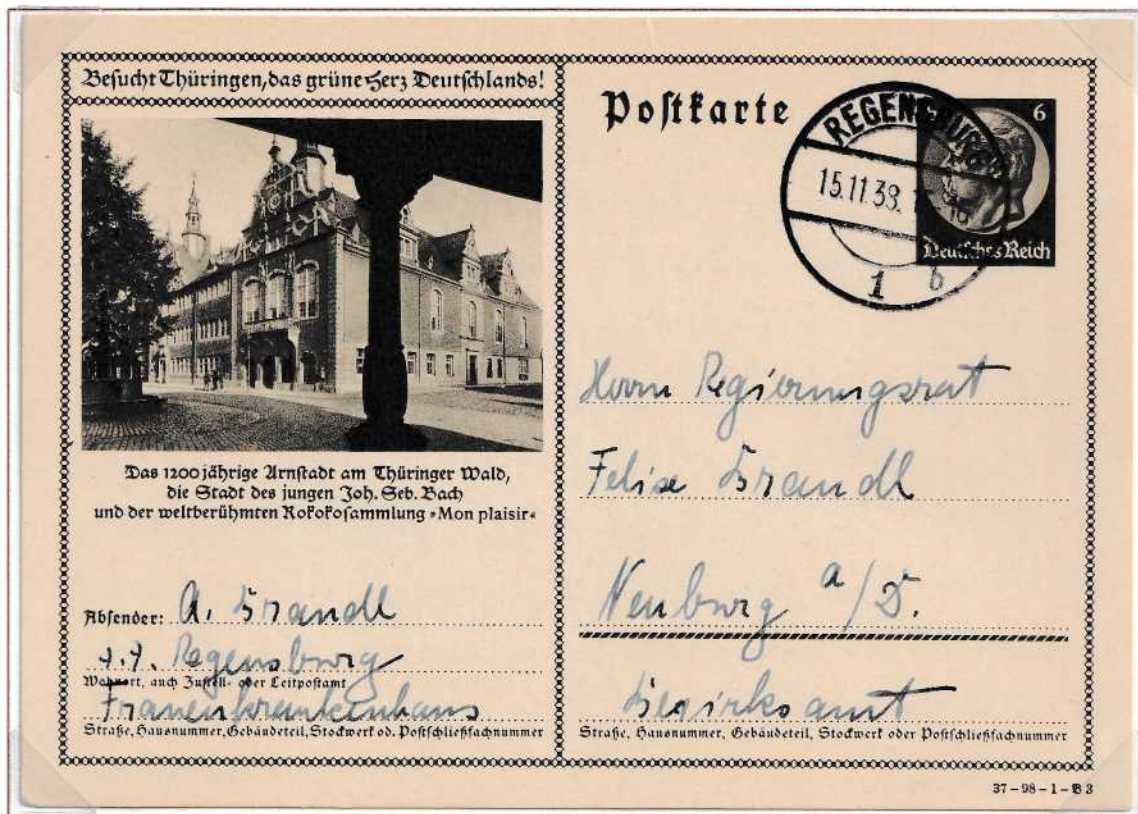 Besucht Thüringen, das grüne Herz Deutschlands!
Das 1200jährige Arnstadt am Thüringer Wald,
die Stadt des jungen Joh. Seb. Bach
und der weltberühmten Rokokosammlung »Mon plaisir«
Absender: A. Brandl
z.Z. Regensburg
Wohnort, auch Zustell- oder Leitpostamt
Frauenkrankenhaus
Straße, Hausnummer, Gebäudeteil, Stockwerk od. Postschließfachnummer
Postkarte
REGENSBURG
15.11.38.
1 b
6
Deutsches Reich
Herrn Regierungsrat
Felix Brandl
Neuburg a/D.
Bezirksamt
Straße, Hausnummer, Gebäudeteil, Stockwerk oder Postschließfachnummer
37-98-1-B 3